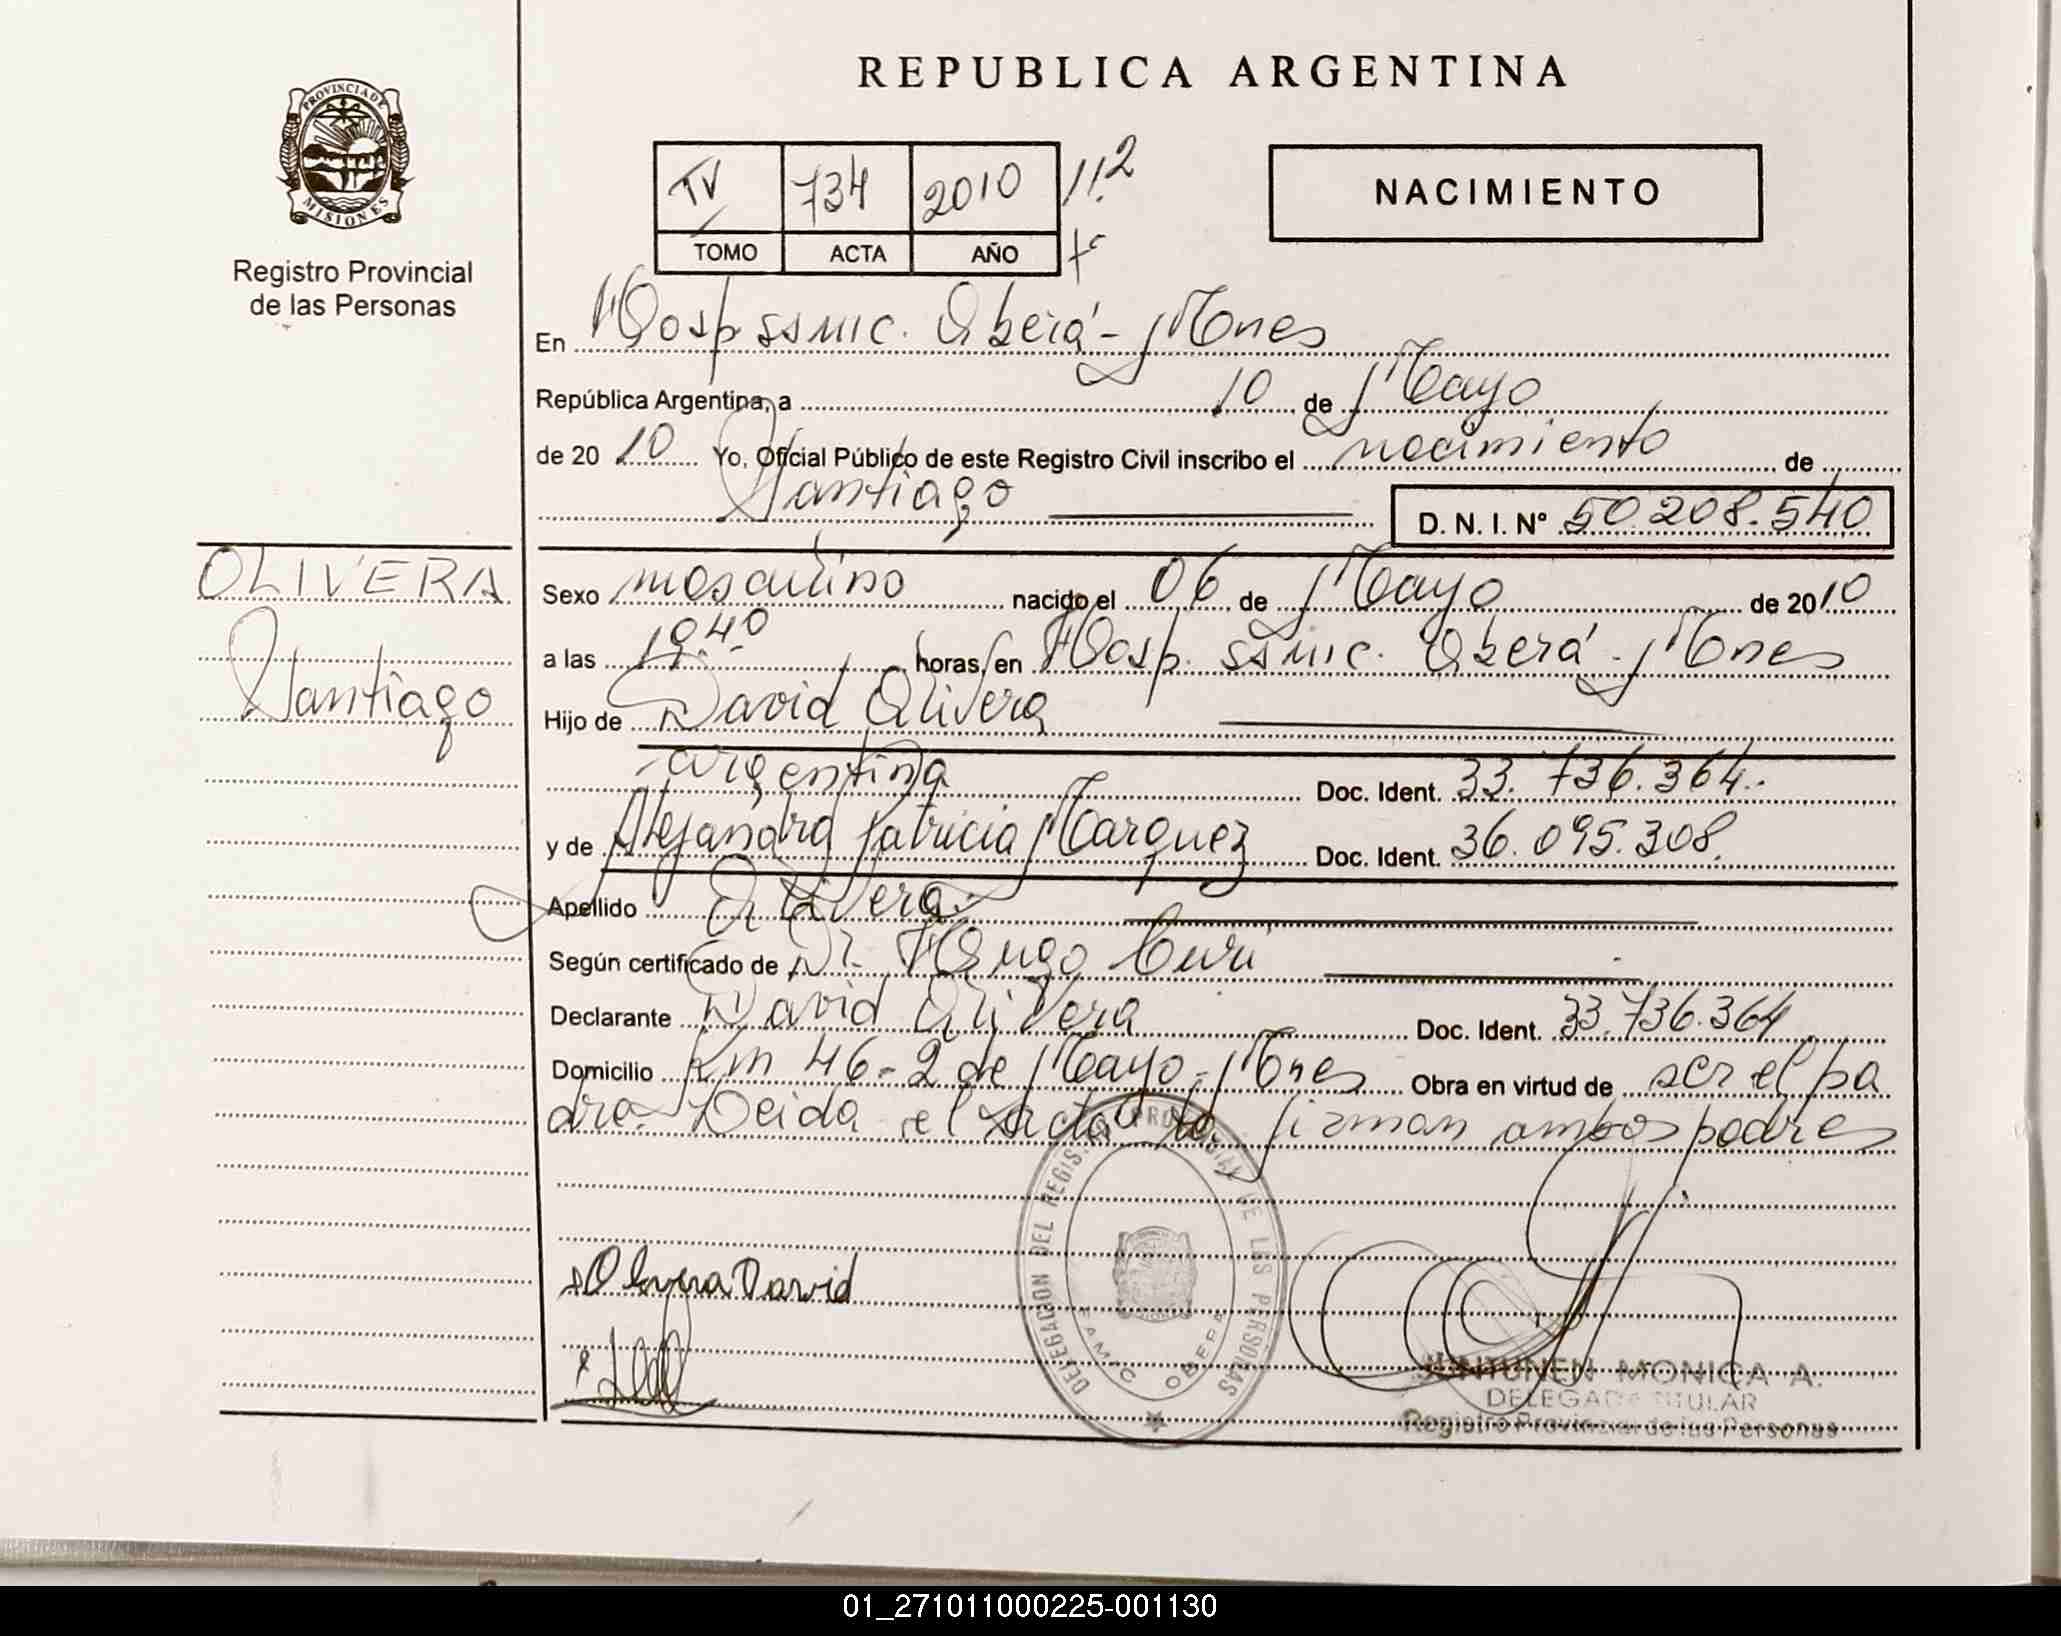 REPUBLICA ARGENTINA
PROVINCIA DE MISIONES
Registro Provincial
de las Personas
TV 734 2010 112
TOMO ACTA AÑO
NACIMIENTO
En Hosp SSMIC. Oberá - Mnes
República Argentina, a 10 de Mayo
de 2010 Yo, Oficial Público de este Registro Civil inscribo el nacimiento de
Santiago D. N. I. Nº 50.208.540
OLIVERA
Santiago
Sexo masculino nacido el 06 de Mayo de 2010
a las 19.40 horas, en Hosp. SSMIC. Oberá - Mnes
Hijo de David Olivera
argentina Doc. Ident. 33.736.364.
y de Alejandra Patricia Marquez Doc. Ident. 36.095.308.
Apellido Olivera.
Según certificado de Dr. Hugo
Declarante David Olivera Doc. Ident. 33.736.364
Domicilio Km 46 - 2 de Mayo - Mnes Obra en virtud de ser el pa
dre. Leida el Acta la firman ambos padres
Olivera David
DELEGACION DEL REGISTRO PROVINCIAL DE LAS PERSONAS
SAMIC OBERA
JUNTUNEN MONICA A.
DELEGADA TITULAR
Registro Provincial de las Personas
01_271011000225-001130